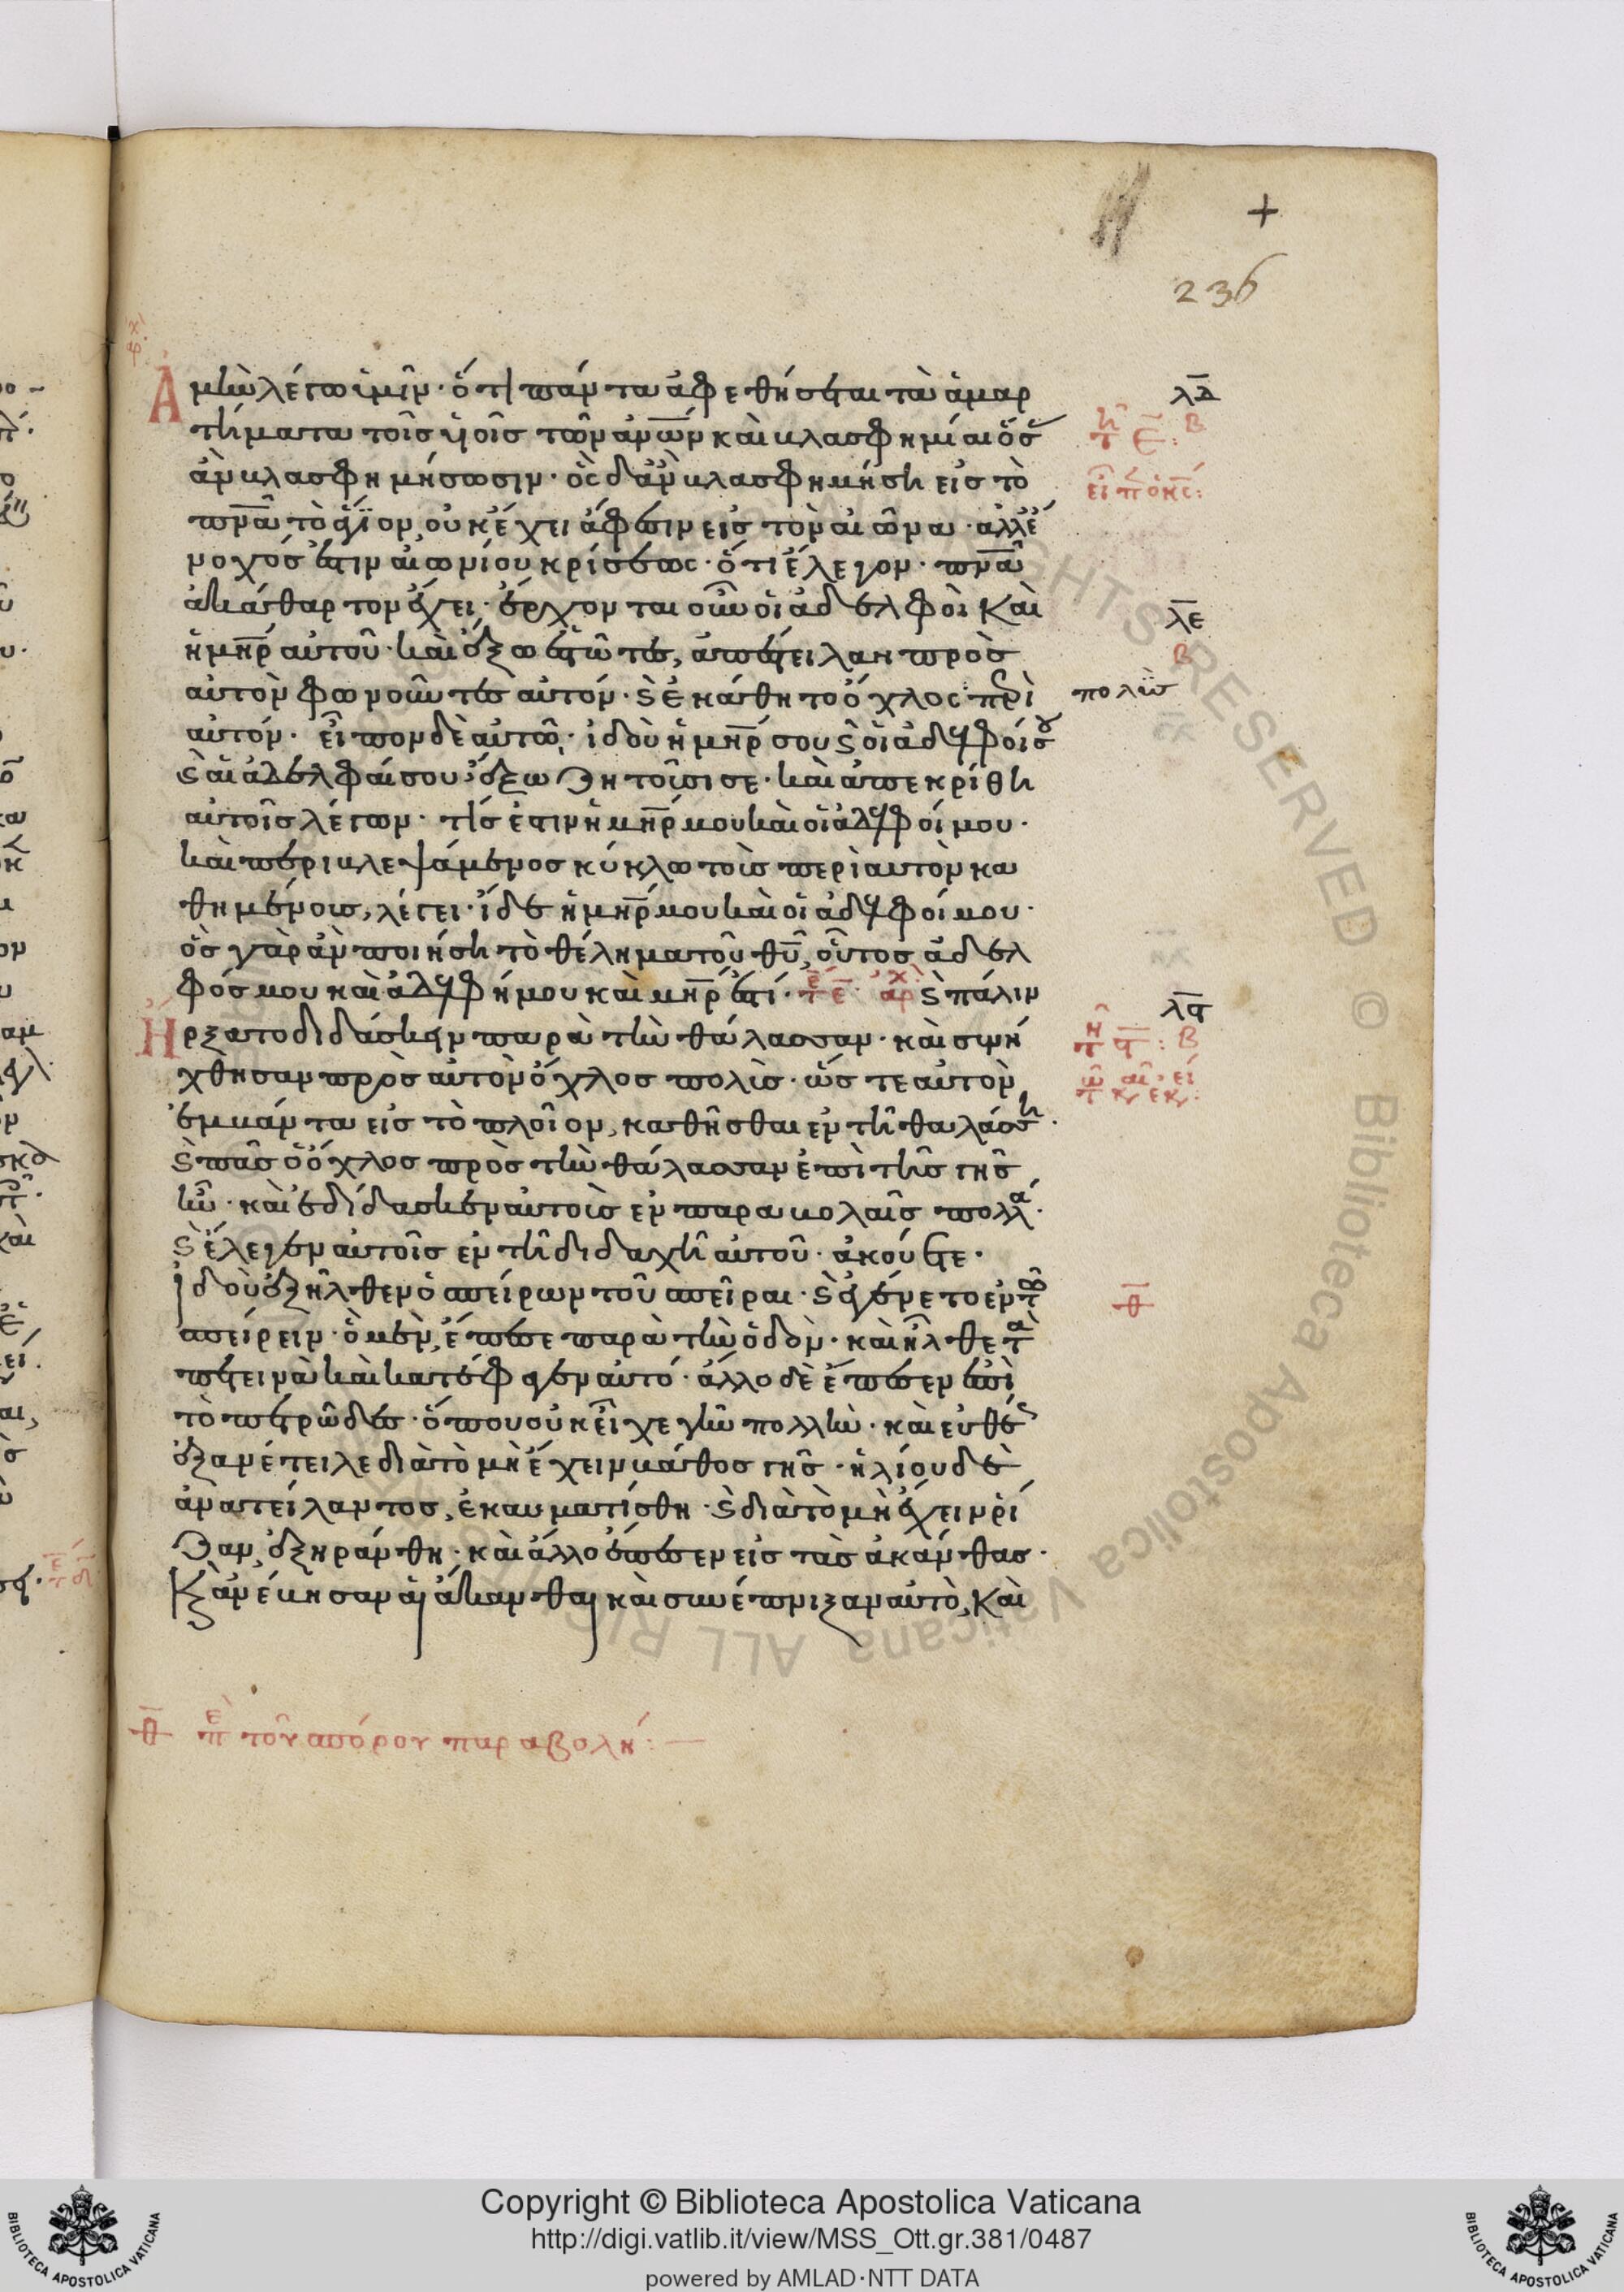 +
236
Ἀμὴν λέγω ὑμῖν· ὅτι πάντα ἀφεθήσεται τὰ ἁμαρ
τήματα τοῖς υἱοῖς τῶν ἀν̅ω̅ν καὶ βλασφημίαι ὅσ
ἂν βλασφημήσωσιν· ὃς δ' ἂν βλασφημήση εἰς τὸ
πν̅α̅ τὸ ἅγιον, οὐκ ἔχει ἄφεσιν εἰς τὸν αἰῶνα· ἀλλ' ἔ
νοχός ἐστιν αἰωνίου κρίσεως· ὅτι ἔλεγον· πν̅α̅
ἀκάθαρτον ἔχει· ἔρχονται οὖν οἱ ἀδελφοὶ καὶ
ἡ μη̅ρ αὐτοῦ· καὶ ἔξω ἑστῶτες, ἀπέστειλαν πρὸς
αὐτὸν φωνοῦντες αὐτόν· ϛ ἐκάθητο ὄχλος περὶ
αὐτόν· εἶπον δὲ αὐτῶ· ἰδοὺ ἡ μη̅ρ σου ϛ οἱ ἀδελφοί σου
ϛ αἱ ἀδελφαί σου ἔξω ζητοῦσι σε· καὶ ἀπεκρίθη
αὐτοῖς λέγων· τίς ἐστιν ἡ μη̅ρ μου καὶ οἱ ἀδελφοί μου·
καὶ περιβλεψάμενος κύκλω τοὺς περὶ αὐτὸν κα
θημένους, λέγει· ἴδε ἡ μη̅ρ μου καὶ οἱ ἀδελφοί μου·
ὃς γὰρ ἂν ποιήση τὸ θέλημα τοῦ θυ̅, οὗτος ἀδελ
φός μου καὶ ἀδελφή μου καὶ μη̅ρ ἐστί· ϛ πάλιν
Ἤρξατο διδάσκειν παρὰ τὴν θάλασσαν· καὶ συνή
χθησαν πρὸς αὐτὸν ὄχλος πολὺς· ὥστε αὐτὸν
ἐμβάντα εἰς τὸ πλοῖον, καθῆσθαι ἐν τῆ θαλάσση·
ϛ πᾶς ὁ ὄχλος πρὸς τὴν θάλασσαν ἐπὶ τῆς γῆς
ἦν· καὶ ἐδίδασκεν αὐτοὺς ἐν παραβολαῖς πολλά·
ϛ ἔλεγεν αὐτοῖς ἐν τῆ διδαχῆ αὐτοῦ· ἀκούετε·
Ἰδοὺ ἐξῆλθεν ὁ σπείρων τοῦ σπεῖραι· ϛ ἐγένετο ἐν τῶ
σπείρειν· ὃ μὲν, ἔπεσε παρὰ τὴν ὁδὸν· καὶ ἦλθε τὰ
πετεινὰ καὶ κατέφαγεν αὐτό· ἄλλο δὲ ἔπεσεν ἐπὶ
τὸ πετρῶδες· ὅπου οὐκ εἶχε γῆν πολλὴν· καὶ εὐθέως
ἐξανέτειλε διὰ τὸ μὴ ἔχειν βάθος γῆς· ἡλίου δὲ
ἀνατείλαντος, ἐκαυματίσθη· ϛ διὰ τὸ μὴ ἔχειν ῥί
ζαν, ἐξηράνθη· καὶ ἄλλο ἔπεσεν εἰς τὰς ἀκάνθας·
Κξ ἀνέβησαν αἱ ἄκανθαι καὶ συνέπνιξαν αὐτὸ, καὶ
λ̅δ̅
λ̅ε̅
Β
πολὺς
λ̅ϛ̅
θ̅
θ̅ περὶ τοῦ σπόρου παραβολή:—
Copyright © Biblioteca Apostolica Vaticana
http://digi.vatlib.it/view/MSS_Ott.gr.381/0487
powered by AMLAD·NTT DATA
BIBLIOTECA APOSTOLICA VATICANA
BIBLIOTECA APOSTOLICA VATICANA